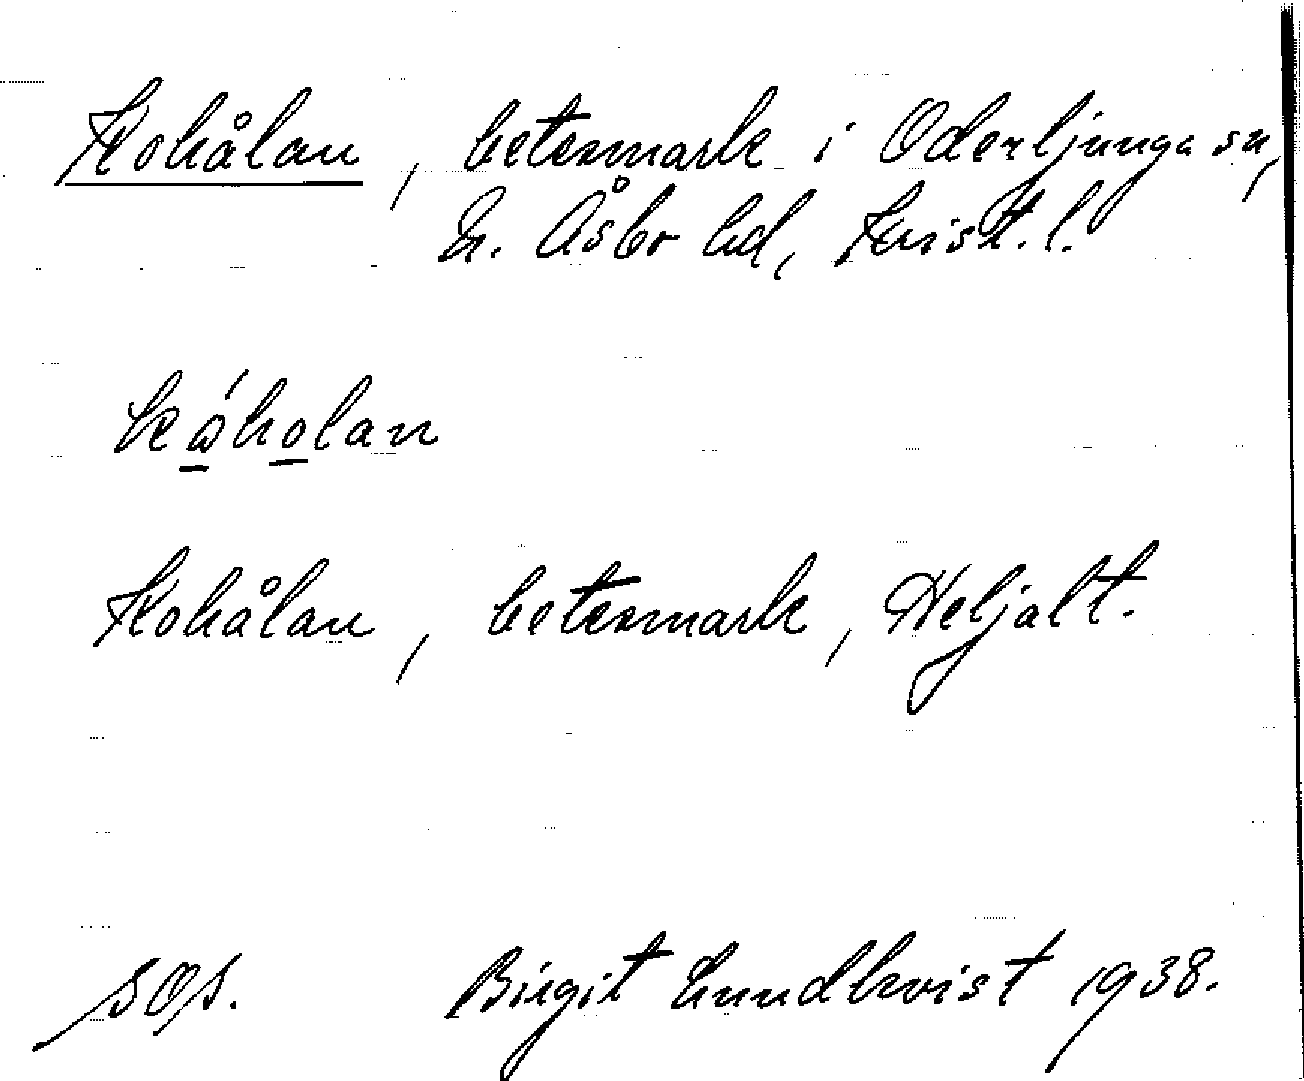 Kohålan, betesmark i Oderljunga sn,
N. Åsbo hd, Krist. l.
kώ̱ho̱lan
Kohålan, betesmark, Heljalt.
sOs. Birgit Lundkvist 1938.